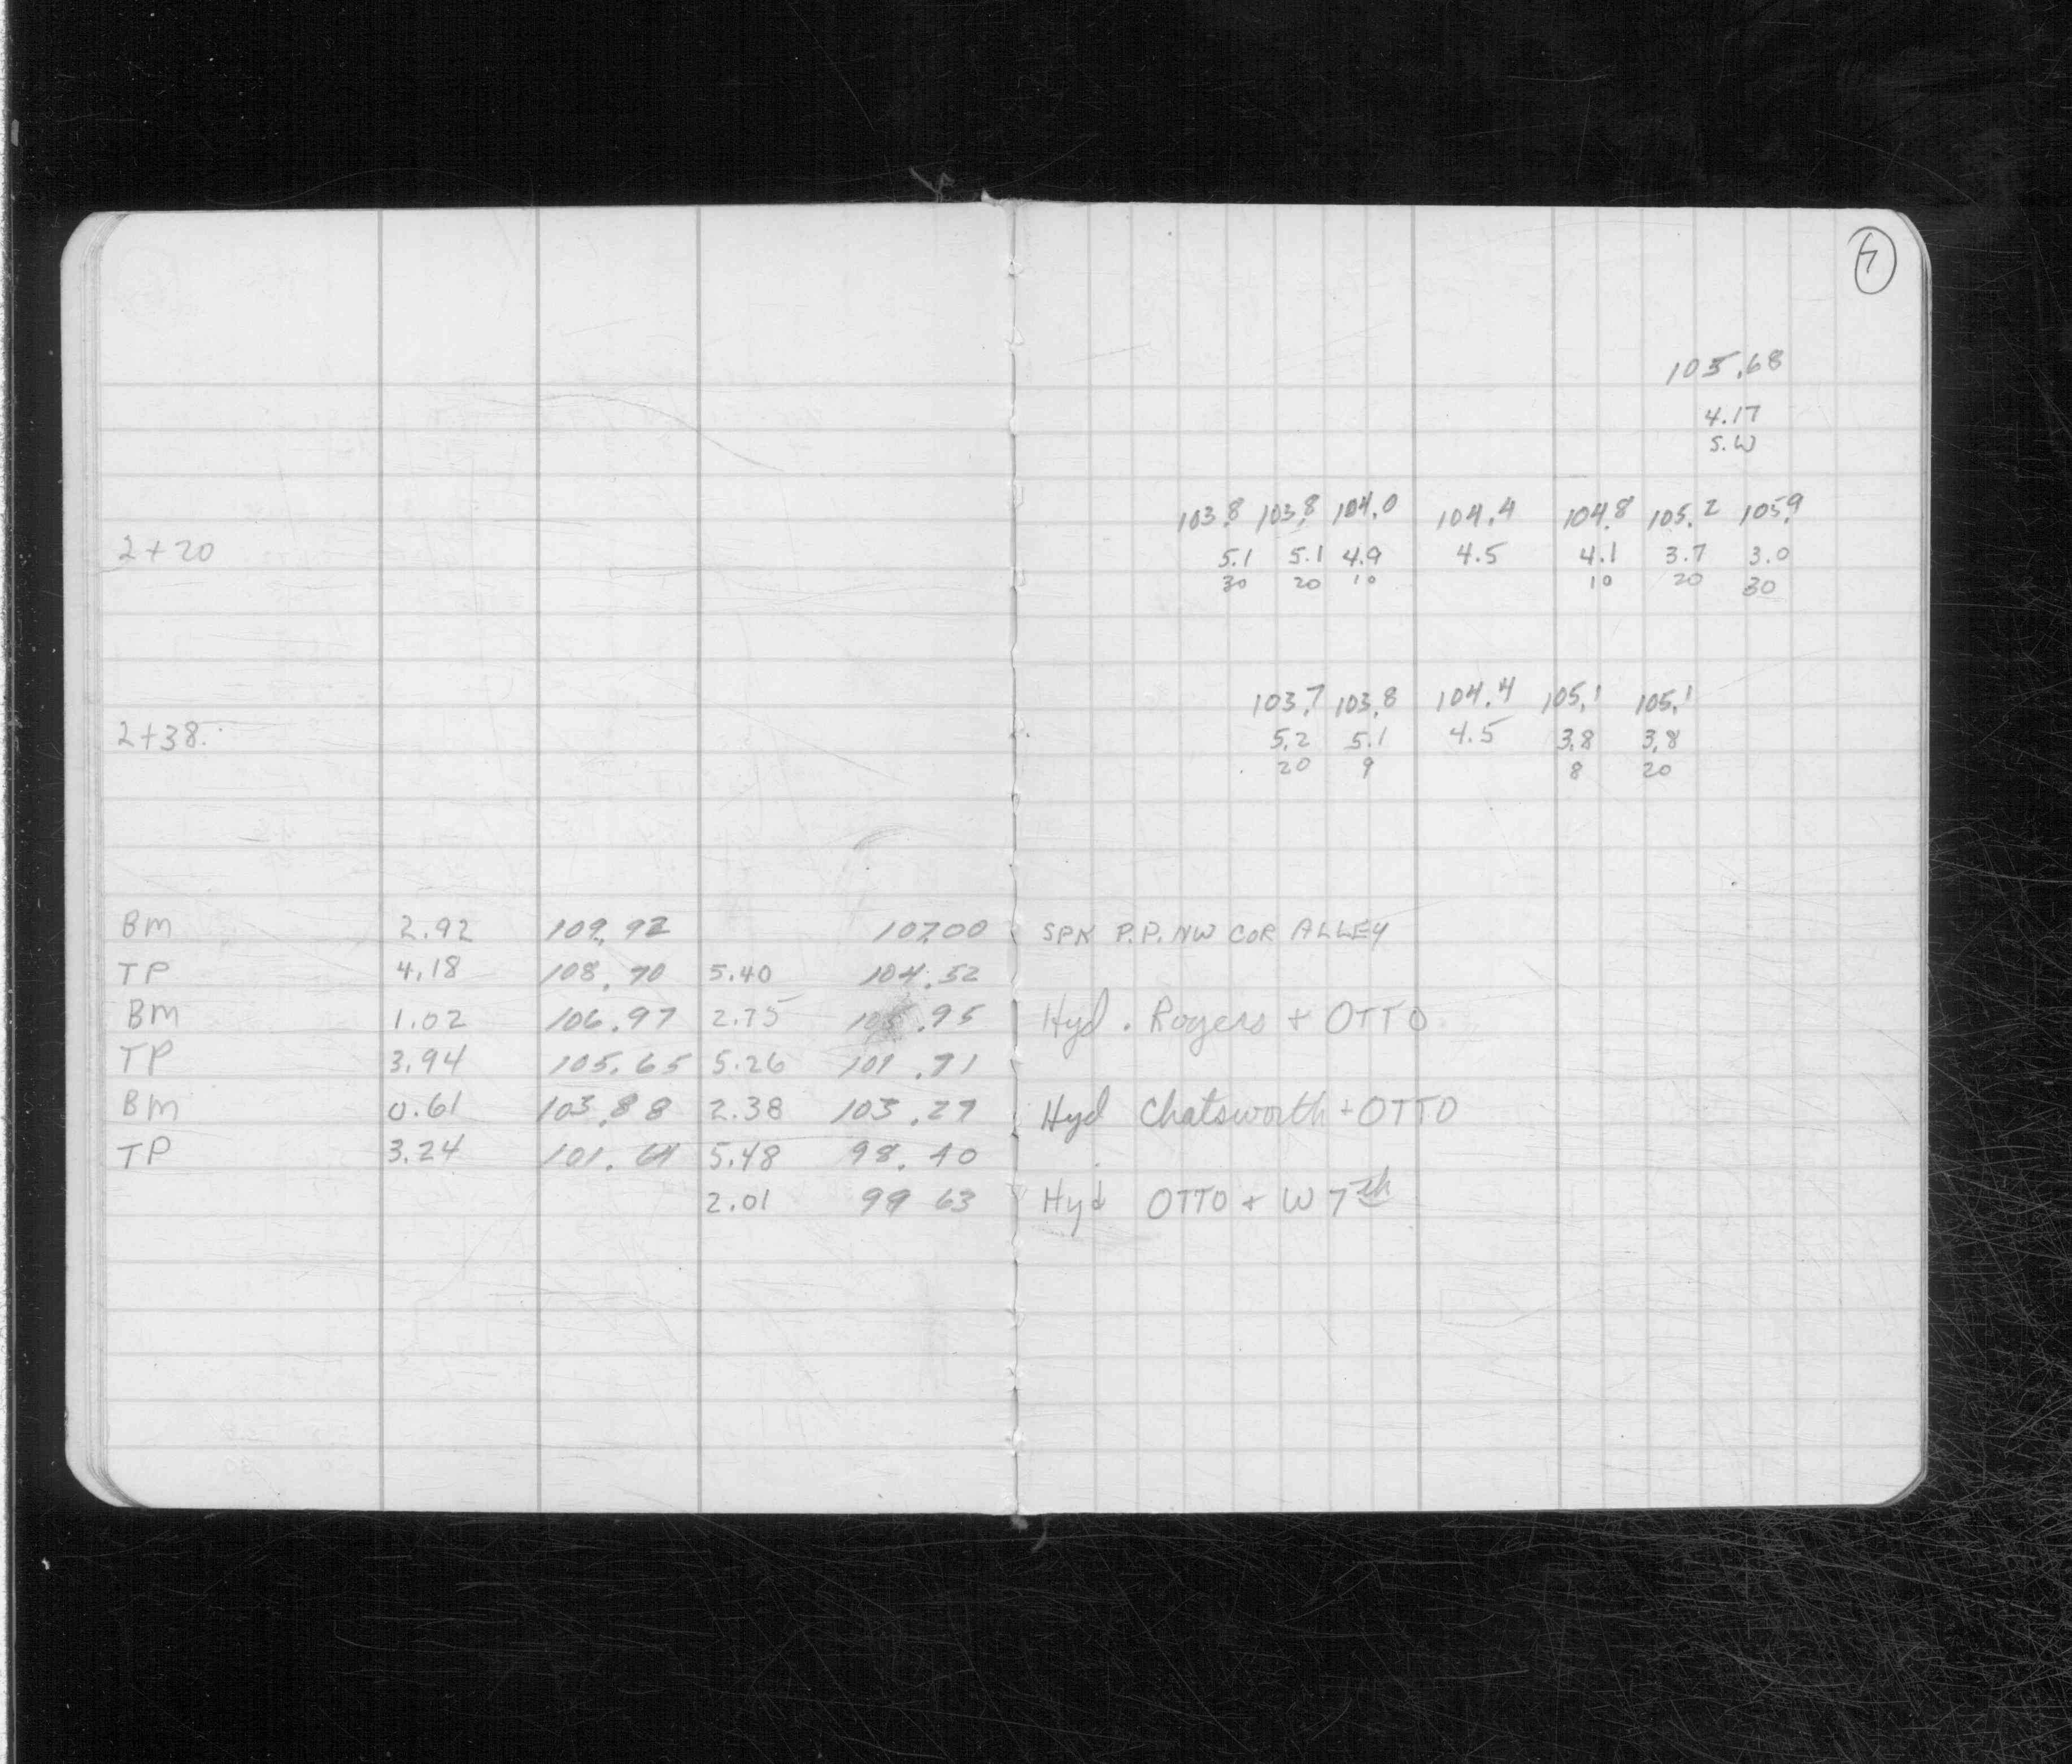 4
105.68
4.17
S.W
103.8 103.8 104.0 104.4 104.8 105.2 105.9
2+20 5.1 5.1 4.9 4.5 4.1 3.7 3.0
30 20 10 10 20 30
103.7 103.8 104.4 105.1 105.1
2+38. 5.2 5.1 4.5 3.8 3.8
20 9 8 20
BM 2.92 109.92 107.00 SPK P.P. NW COR ALLEY
TP 4.18 108.70 5.40 104.52
BM 1.02 106.97 2.75 105.95 Hyd. Rogers + OTTO
TP 3.94 105.65 5.26 101.71
BM 0.61 103.88 2.38 103.27 Hyd Chatsworth + OTTO
TP 3.24 101.64 5.48 98.40
2.01 99 63 Hyd OTTO + W 7th